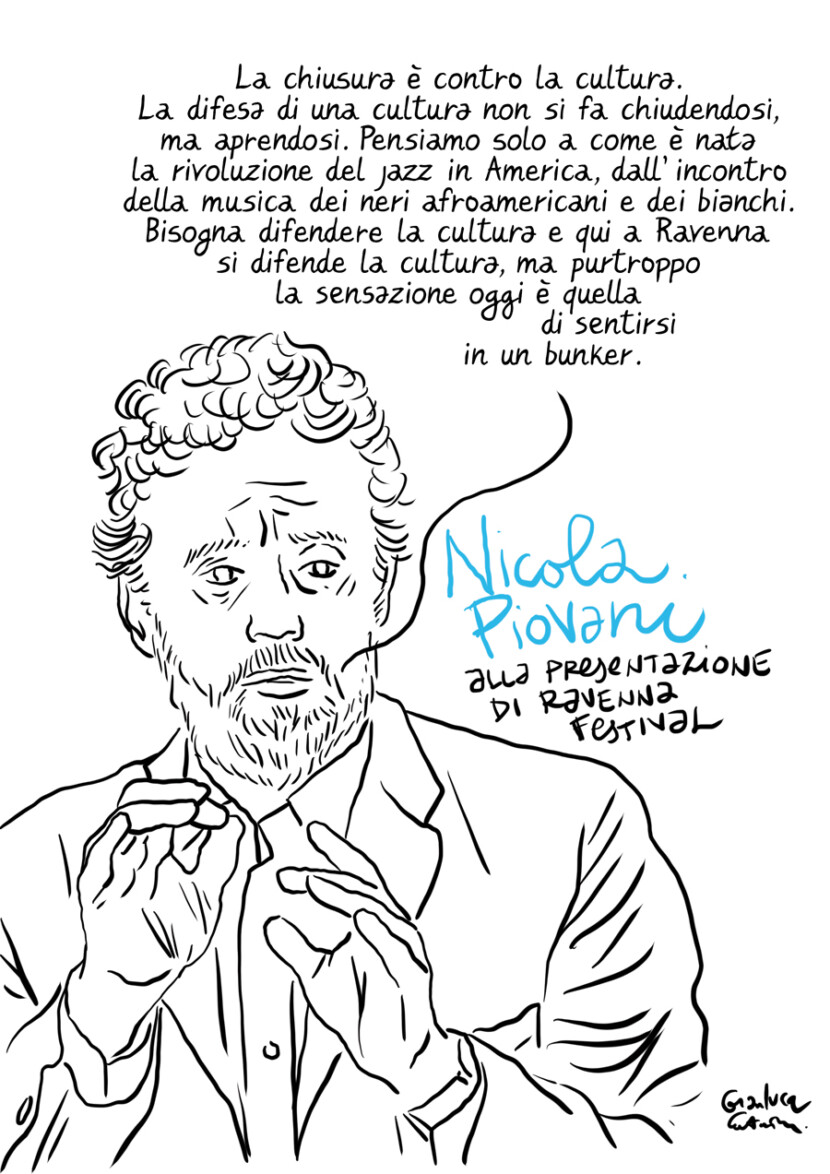 La chiusura è contro la cultura.
La difesa di una cultura non si fa chiudendosi,
ma aprendosi. Pensiamo solo a come è nata
la rivoluzione del jazz in America, dall'incontro
della musica dei neri afroamericani e dei bianchi.
Bisogna difendere la cultura e qui a Ravenna
si difende la cultura, ma purtroppo
la sensazione oggi è quella
di sentirsi
in un bunker.
Nicola
Piovani
alla presentazione
di Ravenna
Festival
Gianluca